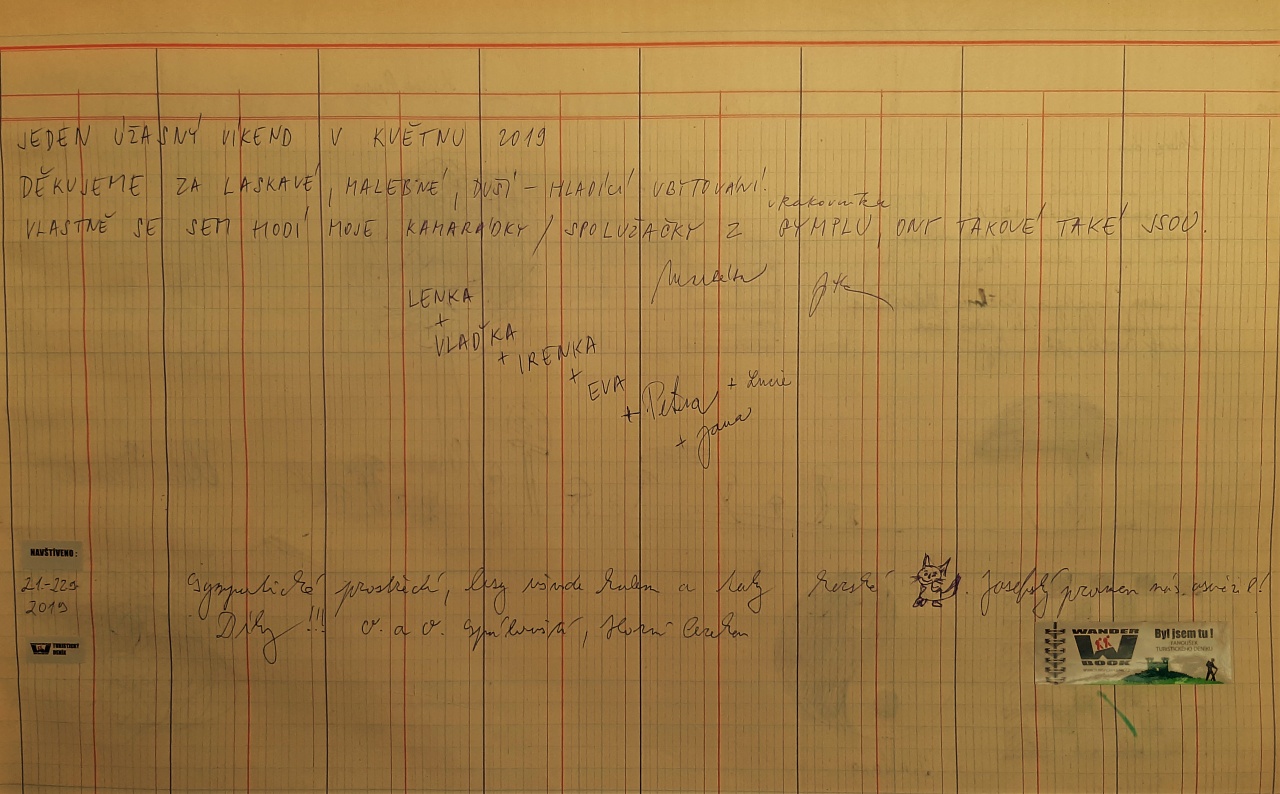 JEDEN ÚŽASNÝ VÍKEND V KVĚTNU 2019
DĚKUJEME ZA LASKAVÉ, MALEBNÉ, DUŠI-HLADÍCÍ UBYTOVÁNÍ.
VLASTNĚ SE SEM HODÍ MOJE KAMARÁDKY / SPOLUŽAČKY Z GYMPLU, ONY TAKOVÉ TAKÉ JSOU.
LENKA
+
VLAĎKA
+ IRENKA
+
EVA
+ Petra + Lucie
+ Jana
NAVŠTÍVENO:
21.-22.9
2019
TURISTICKÝ
DENÍK
Sympatické prostředí, lesy všude kolem a taky hezké . Josefský pramen nás osvěžil!
Díky !!! a
WANDER
BOOK
Byl jsem tu!
FANOUŠEK
TURISTICKÉHO DENÍKU